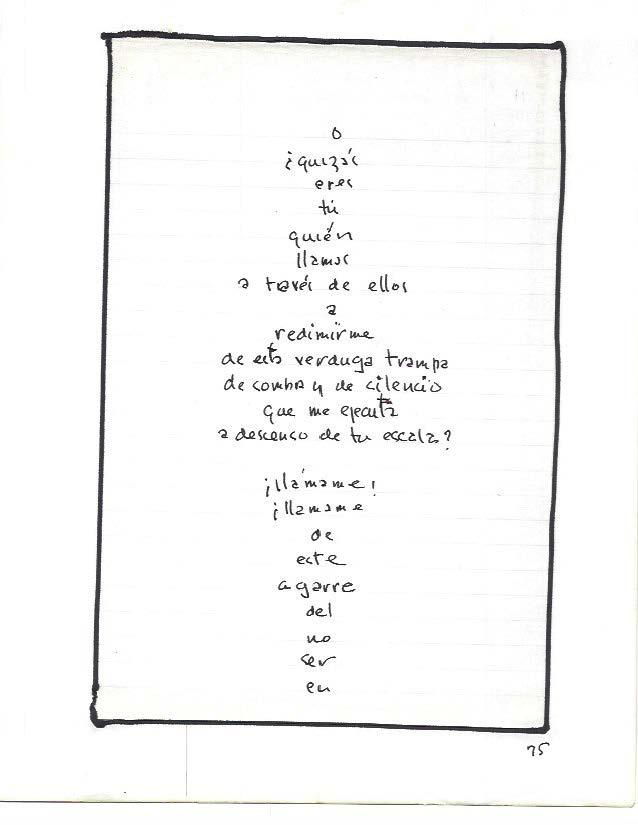 o
¿quizás
eres
tú
quién
llamas
a través de ellos
a
redimirme
de esta verduga trampa
de sombra y de silencio
que me ejecuta
a descenso de tu escala?
¡llámame!
¡llamame
de
este
agarre
del
no
ser
en
75